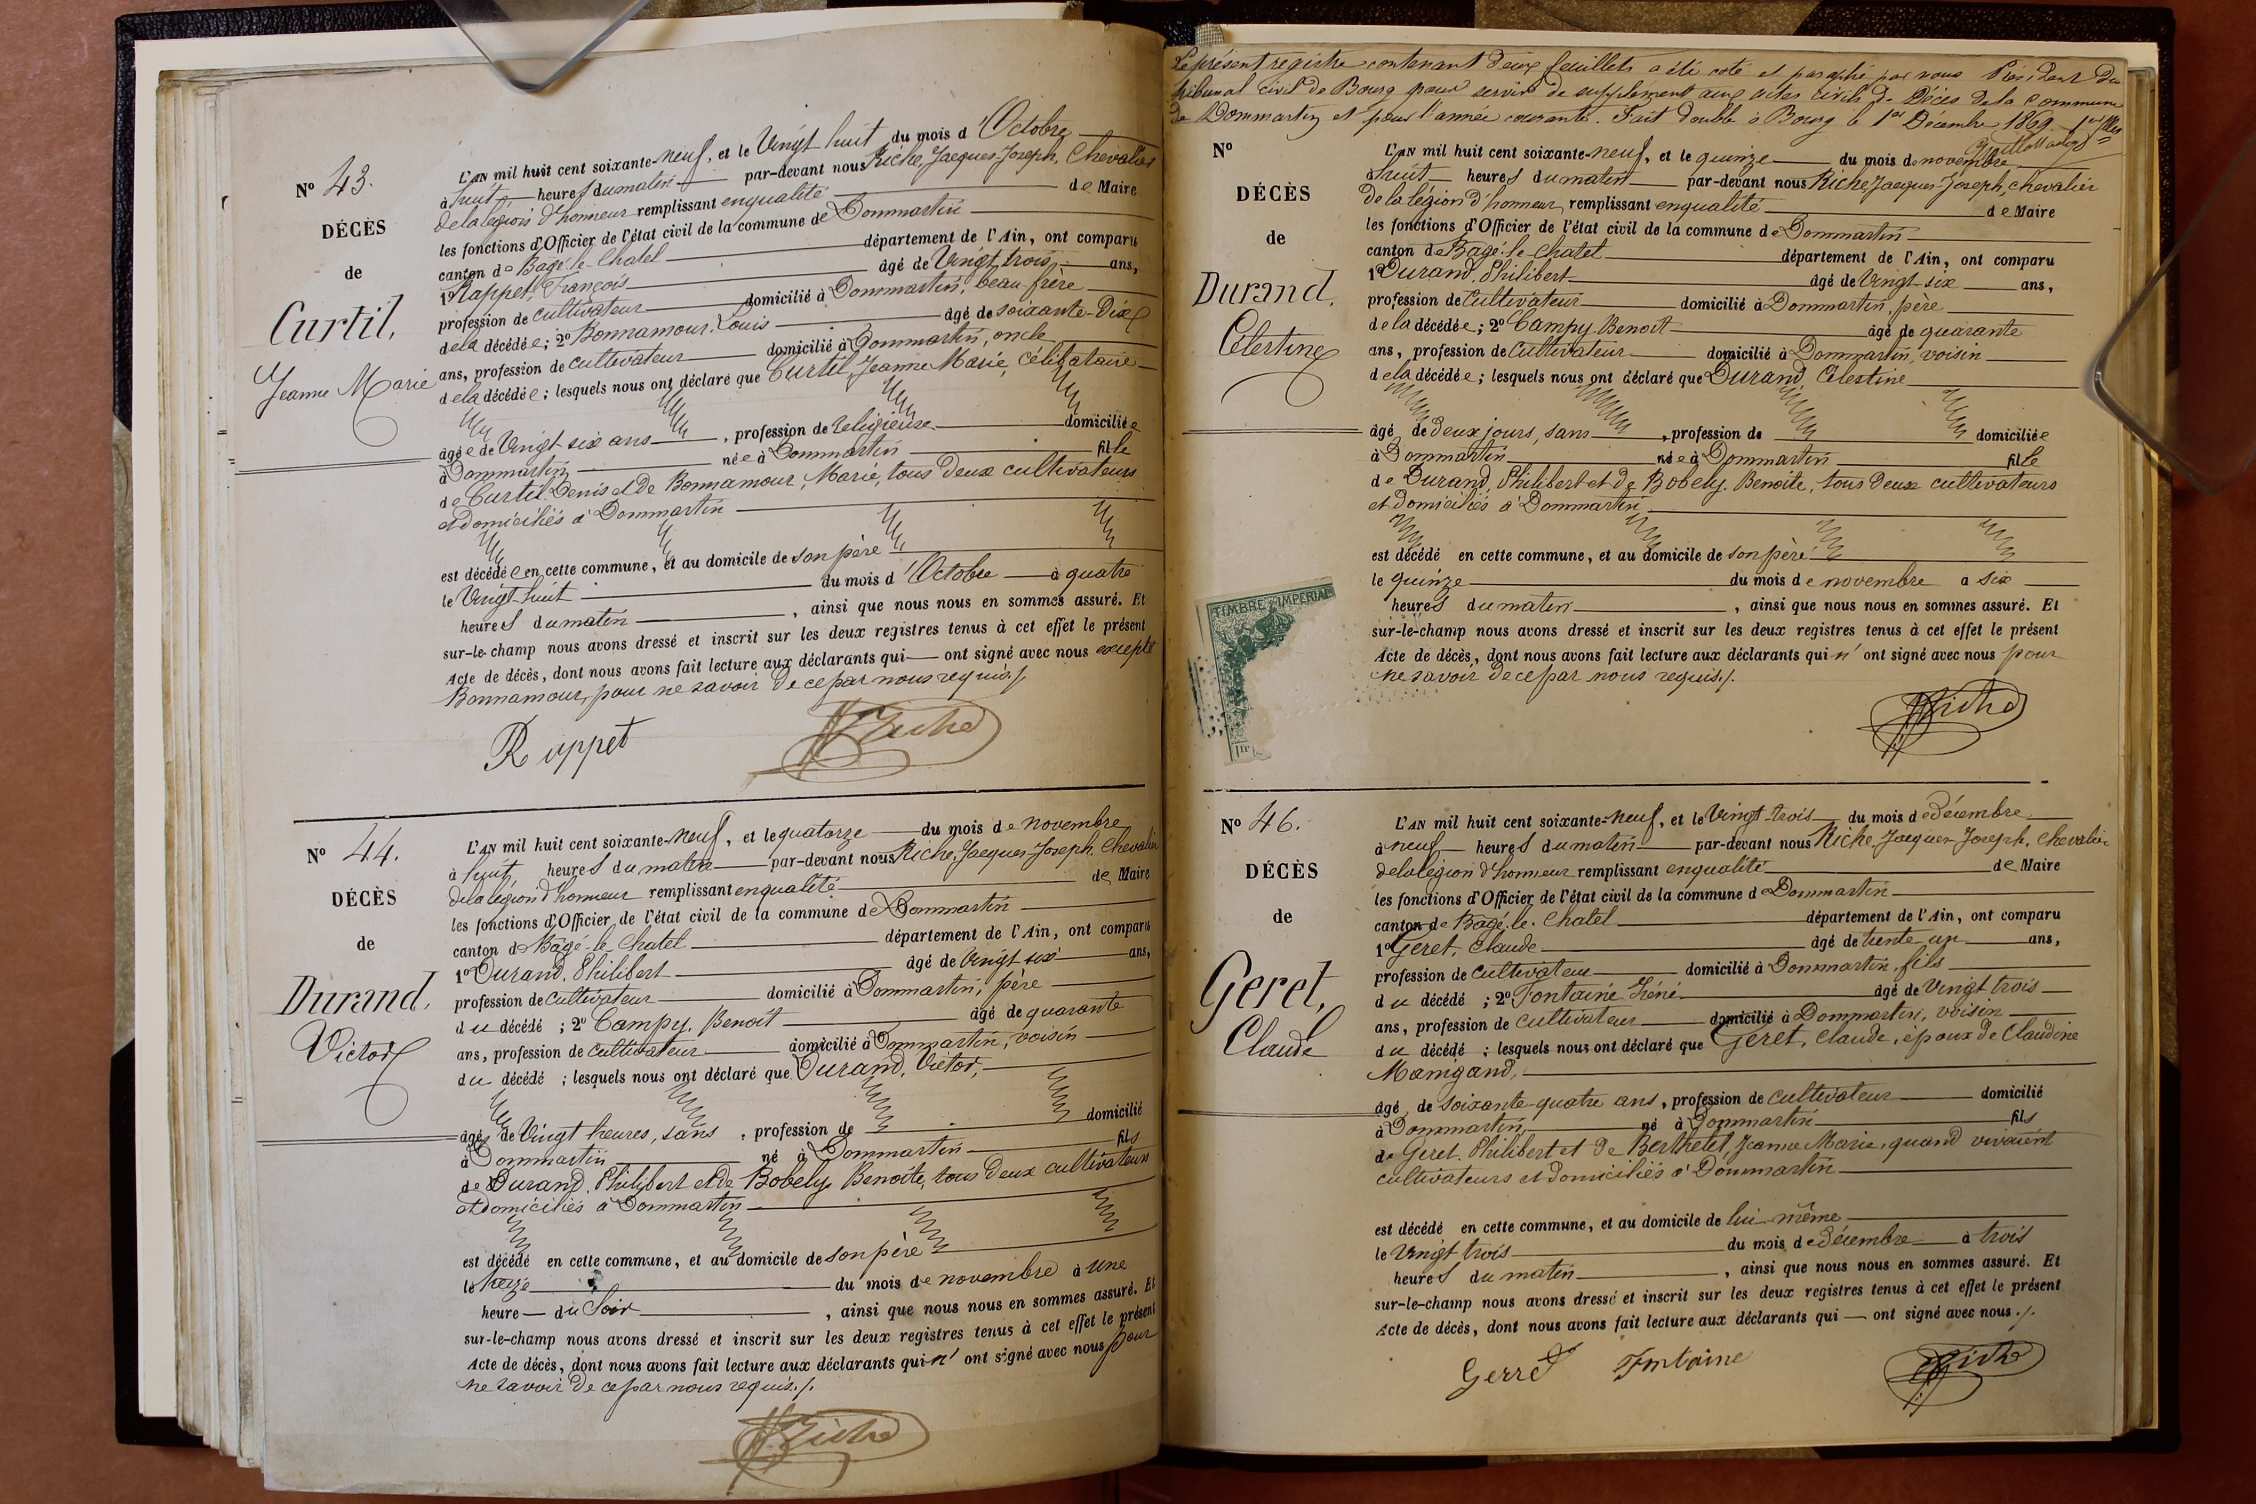 N° 43.
DÉCÈS
de
Curtil,
Jeanne Marie
L'AN mil huit cent soixante-neuf, et le Vingt huit du mois d'Octobre
à huit heures du matin par-devant nous Riche, Jacques-Joseph, Chevalier
de la légion d'honneur remplissant en qualité de Maire
les fonctions d'Officier de l'état civil de la commune de Dommartin
canton de Bagé-le-Chatel département de l'Ain, ont comparu
1° Rappet, François âgé de Vingt trois ans,
profession de cultivateur domicilié à Dommartin, beau frère
de la décédée; 2° Bonnamour, Louis âgé de soixante-Dix
ans, profession de cultivateur domicilié à Dommartin, oncle
de la décédée; lesquels nous ont déclaré que Curtil, Jeanne Marie, Célibataire
âgée de Vingt six ans, profession de religieuse domiciliée
à Dommartin née à Dommartin fille
de Curtil Denis et de Bonnamour, Marie, tous deux cultivateurs
et domiciliés à Dommartin
est décédée en cette commune, et au domicile de son père
le Vingt-huit du mois d'Octobre à quatre
heures du matin, ainsi que nous nous en sommes assuré. Et
sur-le-champ nous avons dressé et inscrit sur les deux registres tenus à cet effet le présent
Acte de décès, dont nous avons fait lecture aux déclarants qui — ont signé avec nous excepté
Bonnamour, pour ne savoir de ce par nous requis./.
Rappet Riche
N° 44.
DÉCÈS
de
Durand,
Victor
L'AN mil huit cent soixante-neuf, et le quatorze du mois de novembre
à huit heures du matin par-devant nous Riche, Jacques-Joseph, Chevalier
de la légion d'honneur remplissant en qualité de Maire
les fonctions d'Officier de l'état civil de la commune de Dommartin
canton de Bagé-le-Chatel département de l'Ain, ont comparu
1° Durand, Philibert âgé de Vingt six ans,
profession de cultivateur domicilié à Dommartin, père
du décédé; 2° Campy, Benoit âgé de quarante
ans, profession de cultivateur domicilié à Dommartin, voisin
du décédé; lesquels nous ont déclaré que Durand, Victor,
âgé de Vingt heures, sans, profession de domicilié
à Dommartin né à Dommartin fils
de Durand, Philibert et de Bobely, Benoite, tous deux cultivateurs
et domiciliés à Dommartin
est décédé en cette commune, et au domicile de son père
le treize du mois de novembre à une
heure — du soir, ainsi que nous nous en sommes assuré. Et
sur-le-champ nous avons dressé et inscrit sur les deux registres tenus à cet effet le présent
Acte de décès, dont nous avons fait lecture aux déclarants qui n'ont signé avec nous pour
ne savoir de ce par nous requis./.
Riche
Le présent registre contenant deux feuillets a été coté et paraphé par nous Président du
tribunal civil de Bourg pour servir de supplément aux actes civils de Décès de la Commune
de Dommartin et pour l'année courante. Fait double à Bourg le 1er Décembre 1869.
N°
DÉCÈS
de
Durand,
Célestine
L'AN mil huit cent soixante-neuf, et le quinze du mois de novembre
à huit heures du matin par-devant nous Riche, Jacques-Joseph, chevalier
de la légion d'honneur, remplissant en qualité de Maire
les fonctions d'Officier de l'état civil de la commune de Dommartin
canton de Bagé-le-Chatel département de l'Ain, ont comparu
1° Durand, Philibert âgé de Vingt-six ans,
profession de Cultivateur domicilié à Dommartin, père
de la décédée; 2° Campy, Benoit âgé de quarante
ans, profession de Cultivateur domicilié à Dommartin, voisin
de la décédée; lesquels nous ont déclaré que Durand, Célestine
âgé de deux jours, sans, profession de domiciliée
à Dommartin née à Dommartin fille
de Durand, Philibert et de Bobely, Benoite, tous deux cultivateurs
et domiciliés à Dommartin
est décédé en cette commune, et au domicile de son père
le quinze du mois de novembre à six
heures du matin, ainsi que nous nous en sommes assuré. Et
sur-le-champ nous avons dressé et inscrit sur les deux registres tenus à cet effet le présent
Acte de décès, dont nous avons fait lecture aux déclarants qui n'ont signé avec nous pour
ne savoir de ce par nous requis./.
TIMBRE IMPERIAL
Riche
N° 46.
DÉCÈS
de
Geret,
Claude
L'AN mil huit cent soixante-neuf, et le Vingt-trois du mois de décembre
à neuf heures du matin par-devant nous Riche, Jacques-Joseph, Chevalier
de la légion d'honneur remplissant en qualité de Maire
les fonctions d'Officier de l'état civil de la commune de Dommartin
canton de Bagé-le-Chatel département de l'Ain, ont comparu
1° Geret, Claude âgé de trente un ans,
profession de Cultivateur domicilié à Dommartin, fils
du décédé; 2° Fontaine Iréné âgé de Vingt trois
ans, profession de Cultivateur domicilié à Dommartin, voisin
du décédé; lesquels nous ont déclaré que Geret, Claude, époux de Claudine
Mamgand,
âgé de soixante-quatre ans, profession de cultivateur domicilié
à Dommartin, né à Dommartin fils
de Geret, Philibert et de Berthetet, Jeanne Marie, quand vivaient
cultivateurs et domiciliés à Dommartin
est décédé en cette commune, et au domicile de lui-même
le Vingt trois du mois de décembre à trois
heures du matin, ainsi que nous nous en sommes assuré. Et
sur-le-champ nous avons dressé et inscrit sur les deux registres tenus à cet effet le présent
Acte de décès, dont nous avons fait lecture aux déclarants qui — ont signé avec nous./.
Gerret Fontaine Riche